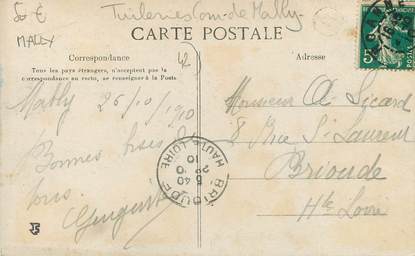 50 €
MABLY
Tuileries com. de Mably
42
CARTE POSTALE
Correspondance
Tous les pays étrangers, n'acceptent pas la
correspondance au recto, se renseigner à la Poste.
Adresse
Mably 26/10/910
Bonnes bises à
tous.
JS
BRIOUDE
5 40
26
10
HAUTE-LOIRE
Monsieur A Sicard
8 Rue St Laurent
Brioude
Hte Loire